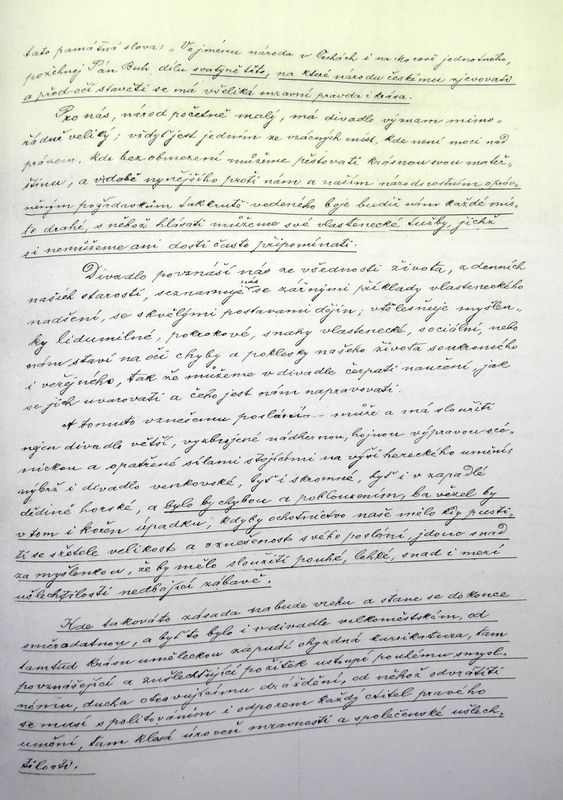 tato památná slova: „Ve jménu národa v Čechách i na Moravě jednotného,
požehnej Pán Bůh dílu svatyně této, na které národu českému zjevovati
a před oči stavěti se má všeliká mravní pravda i krása.
Pro nás, národ početně malý, má divadlo význam mimo=
řádně veliký; vždyť jest jedním ze vzácných míst, kde není moci nad
právem, kde bez obmezení můžeme pěstovati krásnou svou mateř=
štinu, a v době nynějšího proti nám a našim národnostním opráv=
něným požadavkům tak krutě vedeného boje budiž nám každé mís=
to drahé, s něhož hlásati můžeme své vlastenecké tužby, jichž
si nemůžeme ani dosti často připomínati.
Divadlo povznáší nás ze všednosti života, z denních
našich starostí, seznamuje nás se zářnými příklady vlasteneckého
nadšení, se skvělými postavami dějin; vtělesňuje myšlen=
ky lidumilné, pokrokové, snahy vlastenecké, sociální, nebo
nám staví na oči chyby a poklesky našeho života soukromého
i veřejného, tak že můžeme v divadle čerpati naučení, jak
se jich uvarovati a čeho jest nám napravovati.
A tomuto vznešenému poslání – může a má sloužiti
nejen divadlo větší, vyzbrojené nádhernou, hojnou výpravou scé=
nickou a opatřené silami stojícími na výši hereckého umění;
nýbrž i divadlo venkovské, byť i skromné, byť i v zapadlé
dědině horské, a bylo by chybou a poblouzením, ba vězel by
v tom i kořen úpadku, kdyby ochotnictvo naše mělo kdy pusti=
ti se zřetele velikost a vznešenost svého poslání, jdouc snad
za myšlenkou, že by mělo sloužiti pouhé, lehké, snad i mezí
ušlechtilosti nedbající zábavě.
Kde takováto zásada nabude vrchu a stane se dokonce
směrodatnou, a byť to bylo i v divadle velkoměstském, od
tamtud krásu uměleckou zapudí ohyzdná karikatura, tam
povznášející a zušlechťující požitek ustoupí pouhému smysl=
nému, ducha otravujícímu dráždění, od něhož odvrátiti
se musí s politováním i odporem každý ctitel pravého
umění, tam klesá úroveň mravnosti a společenské ušlech=
tilosti.